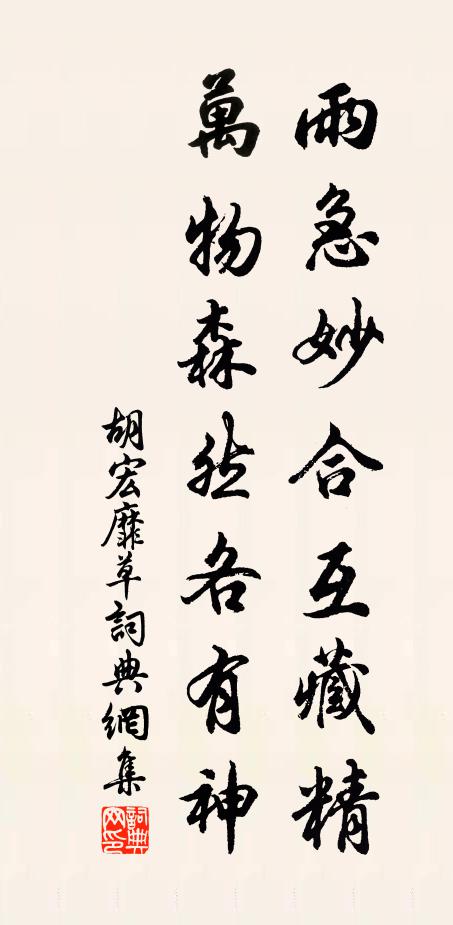 雨急妙合互藏精
萬物森然各有神
胡宏靡草詞典網集
詞典
网印